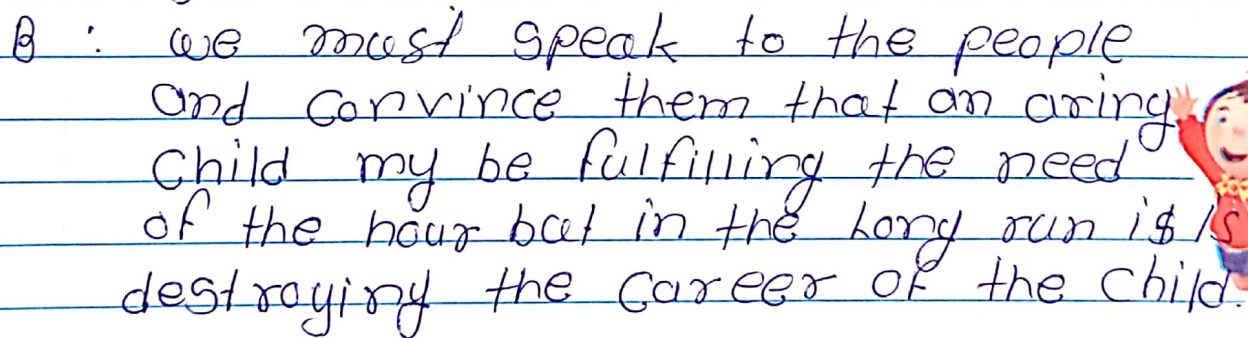 B : we must speak to the people
and convince them that an aring
child my be fulfilling the need
of the hour but in the long run is is
destroying the career of the child.